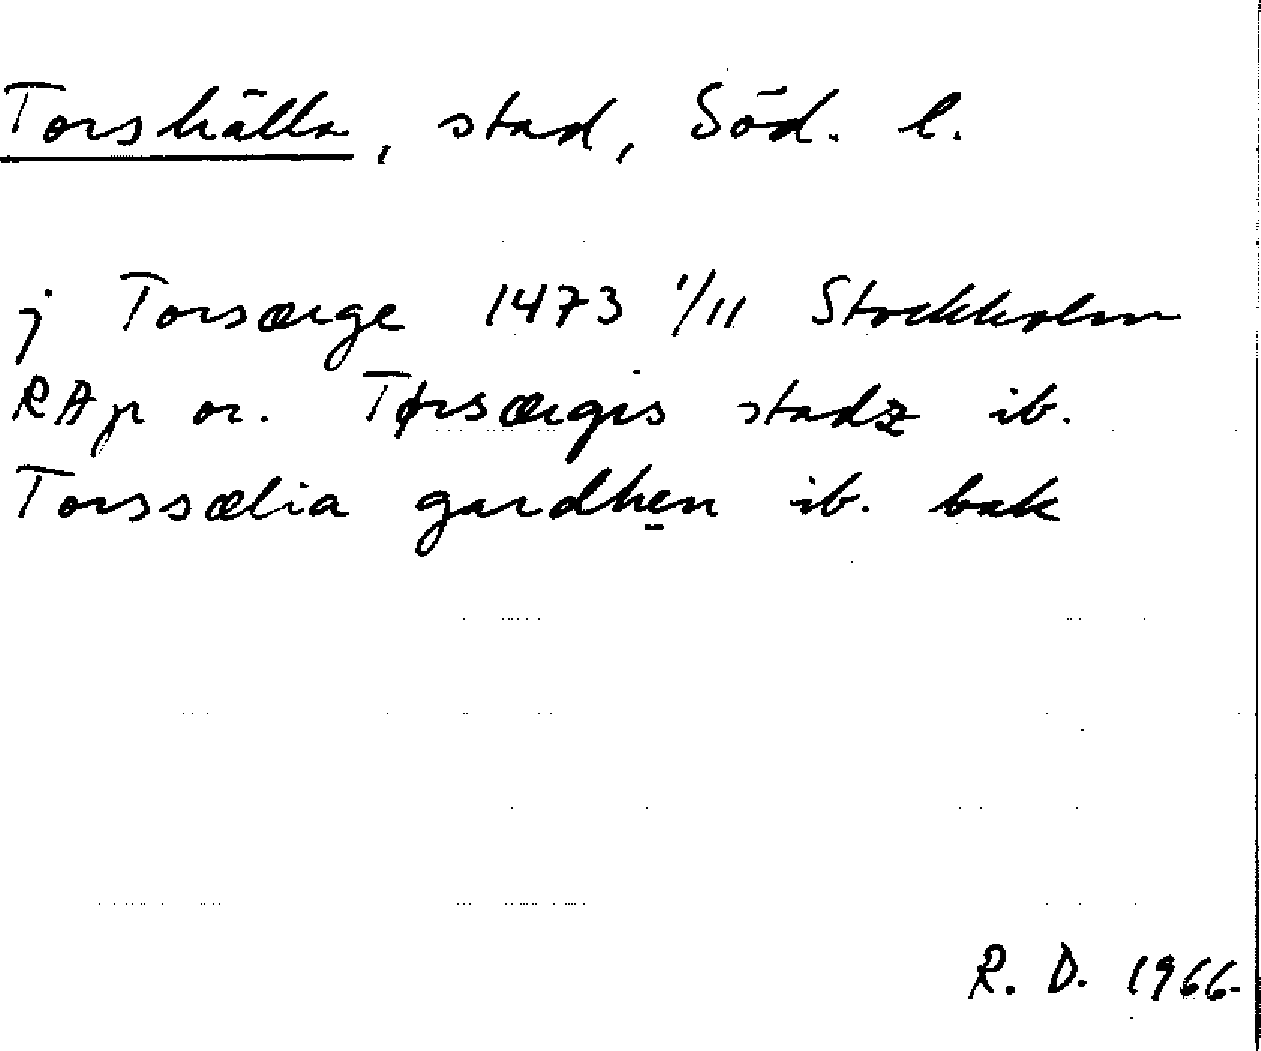 Torshälla, stad, Söd. l.
j Torsærge 1473 1/11 Stockholm
RAp or. Tørsærgis stadz ib.
Torssælia gardhen ib. bak
R. D. 1966.